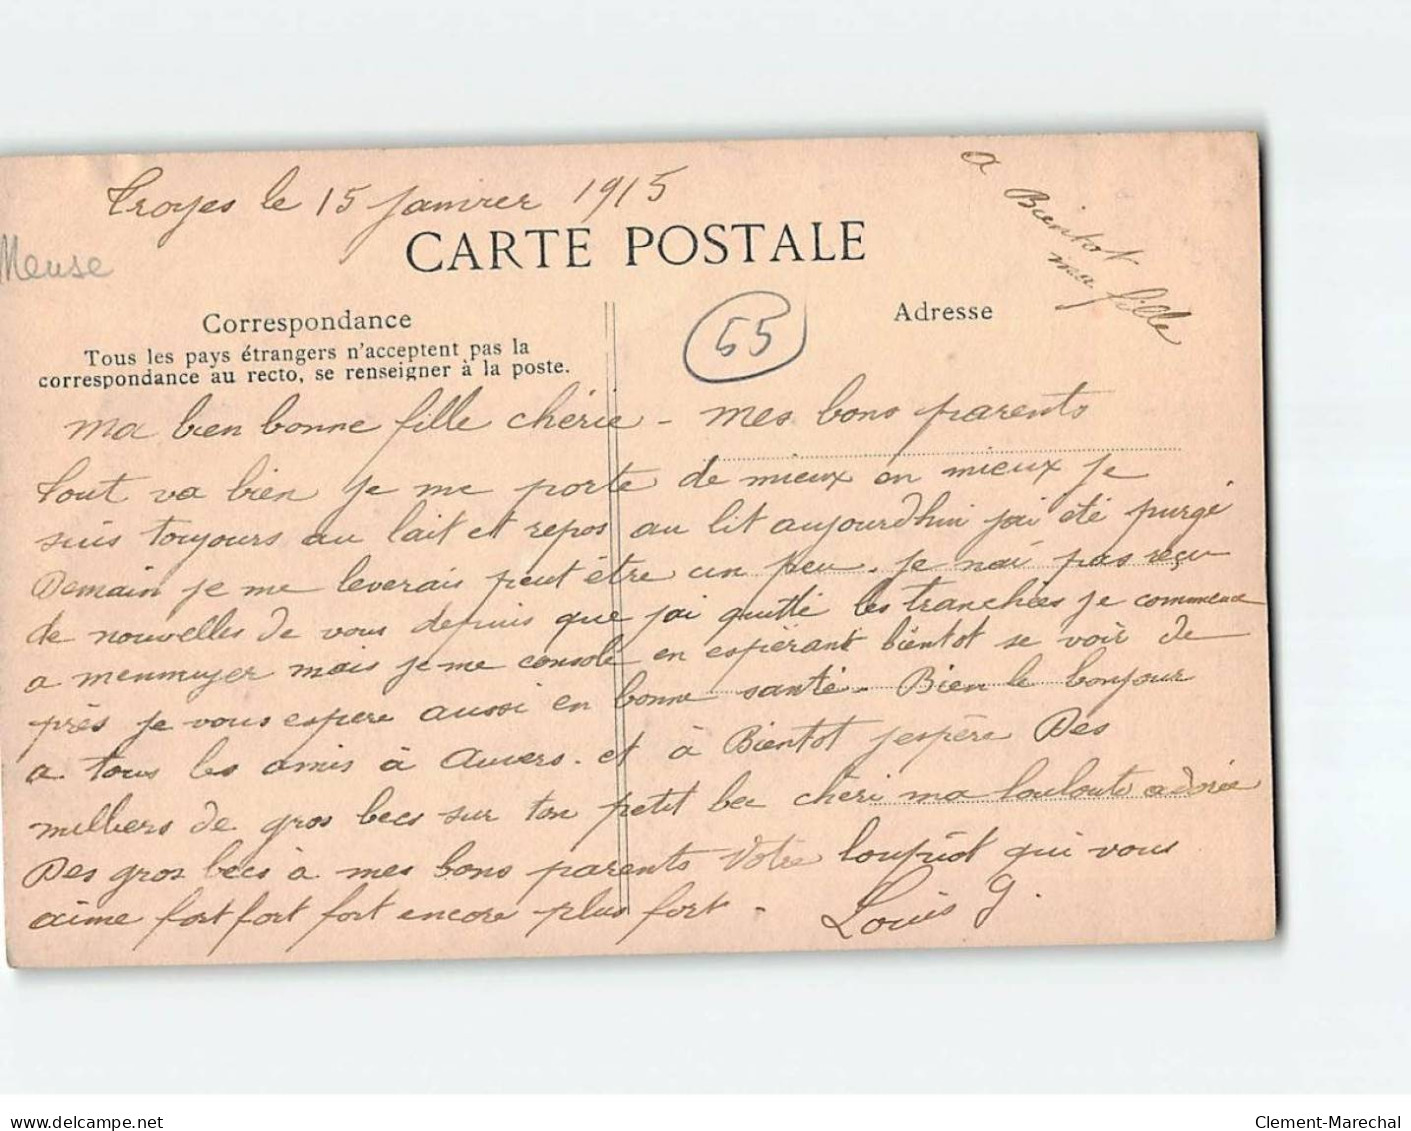 Troyes le 15 janvier 1915
a
Bientot
ma
fille
CARTE POSTALE
Meuse
Correspondance
55
Adresse
Tous les pays étrangers n'acceptent pas la
correspondance au recto, se renseigner à la poste.
Ma bien bonne fille chérie - mes bons parents
tout va bien je me porte de mieux en mieux je
suis toujours au lait et repos au lit aujourdhui jai été purgé
Demain je me leverais peut être un peu. je nai pas reçu
de nouvelles de vous depuis que jai quitté les tranchées je commence
a mennuyer mais je me console en espérant bientot se voir de
près je vous espere aussi en bonne santé. Bien le bonjour
a tous les amis à Auvers. et à Bientot jespère Des
milliers de gros becs sur ton petit bec chéri ma louloute adorée
Des gros becs à mes bons parents Votre loupiot qui vous
aime fort fort fort encore plus fort - Louis G.
delcampe.net
Clement-Marechal